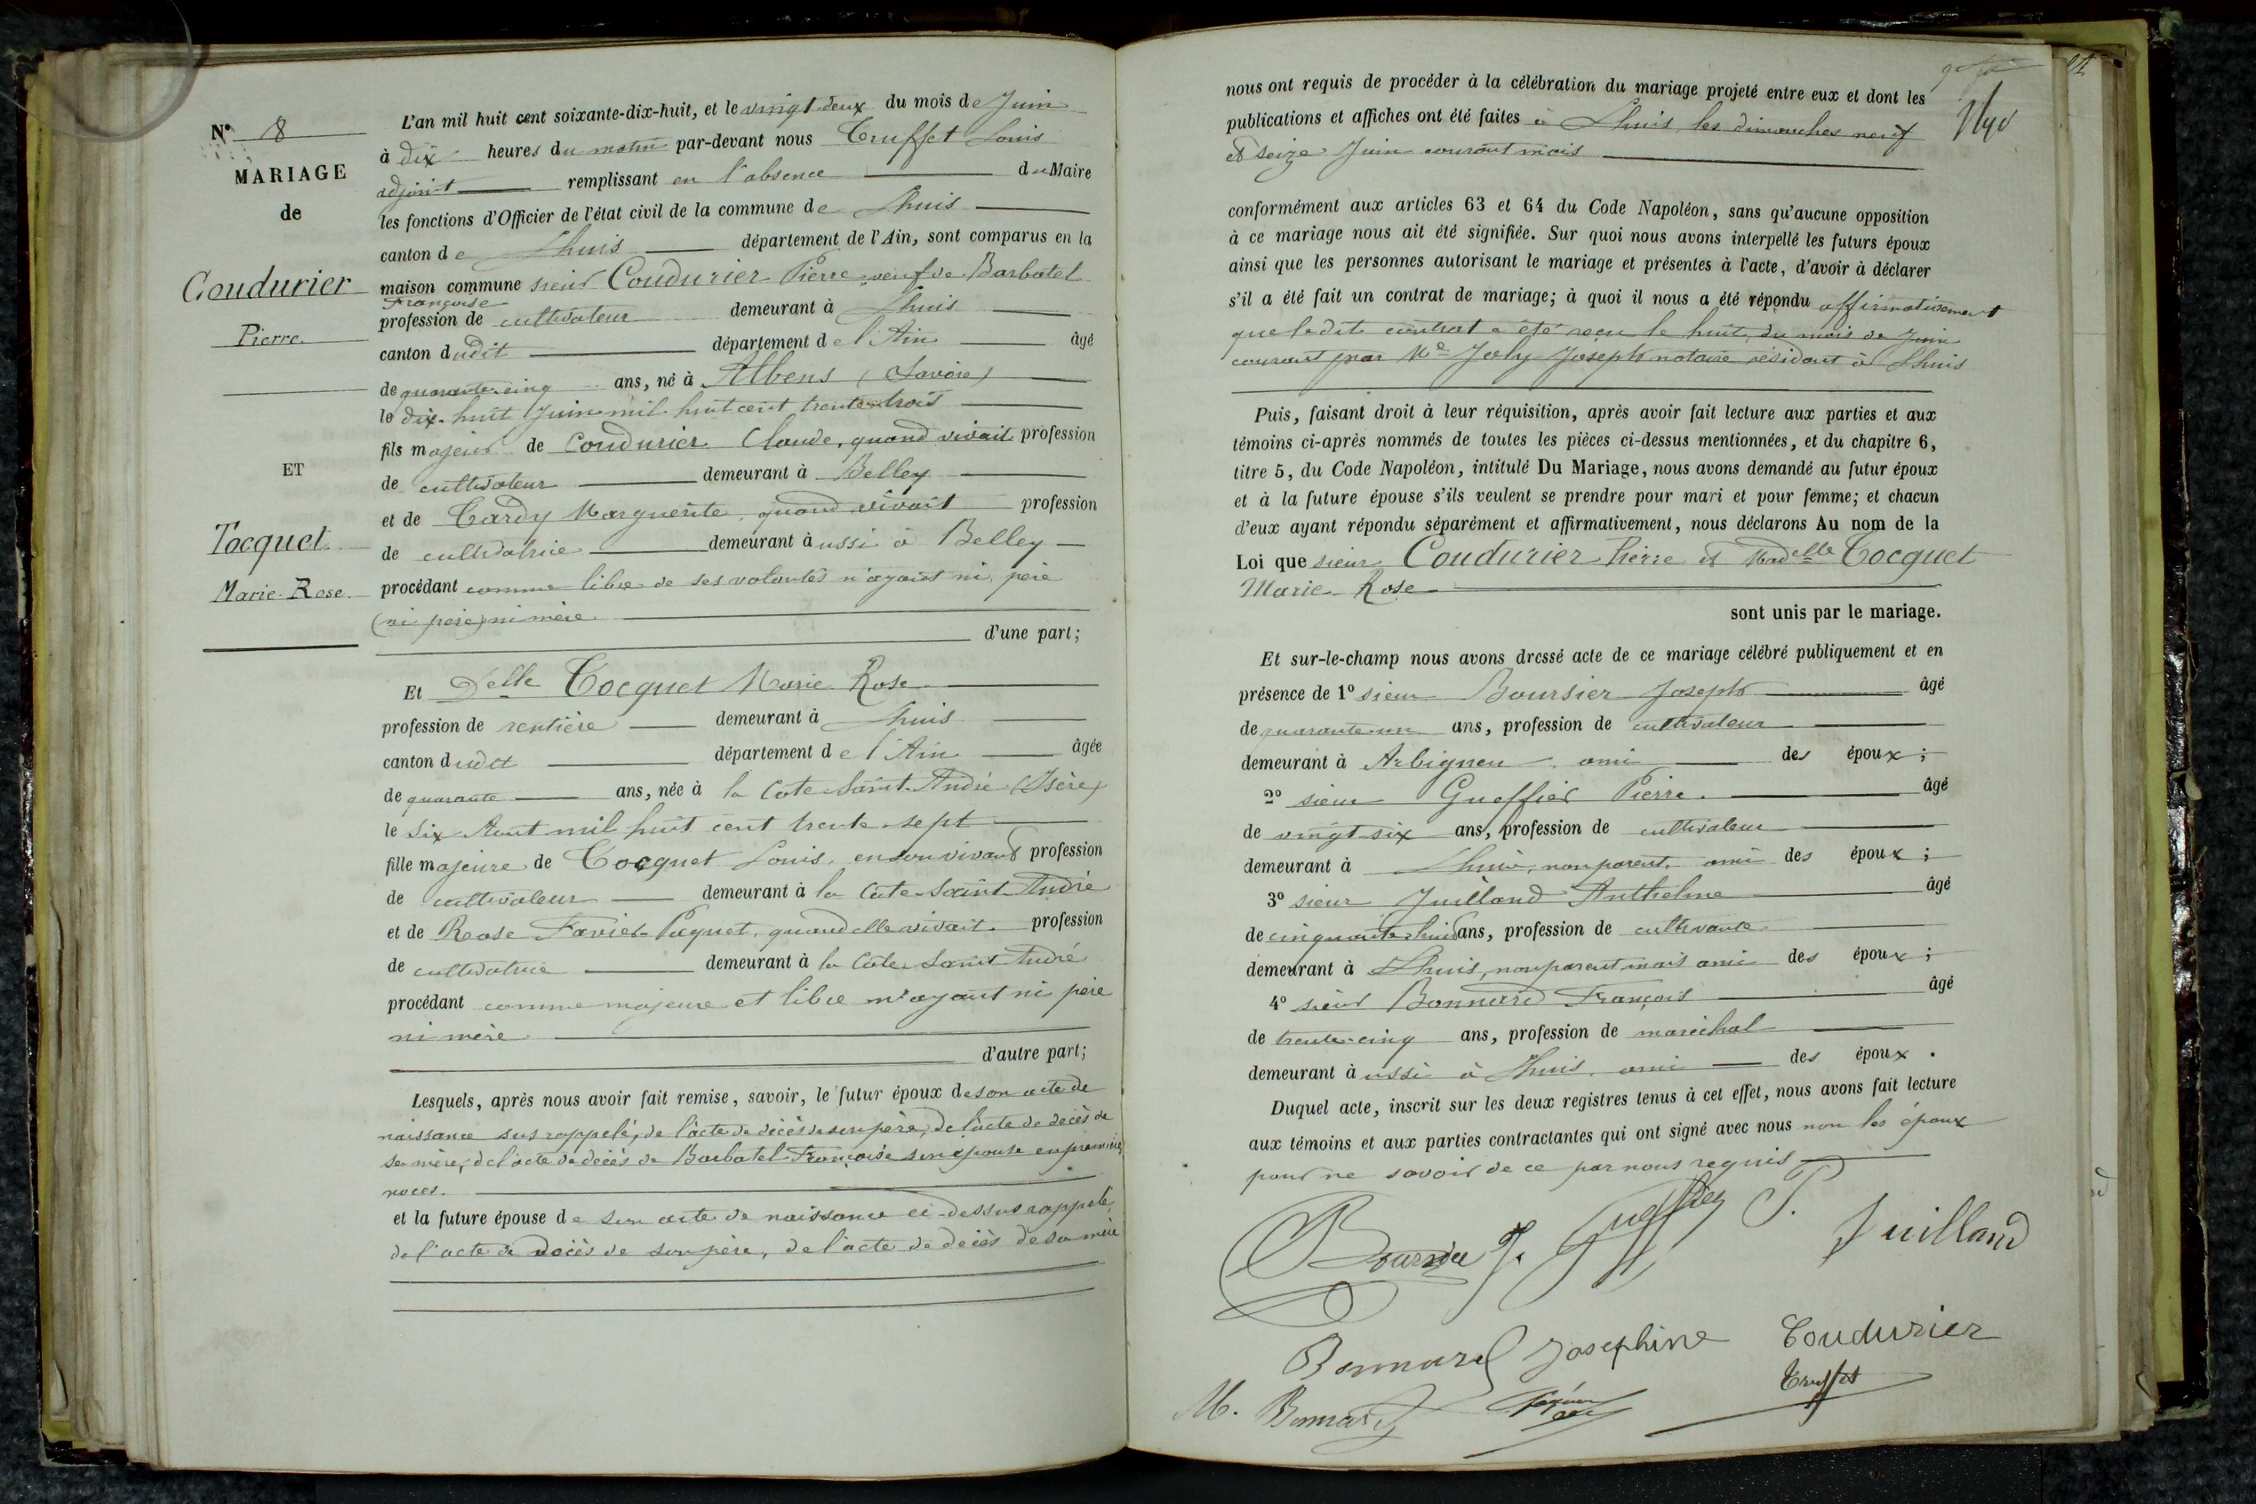 N° 8
MARIAGE
de
Coudurier
Pierre
ET
Tocquet
Marie Rose
L'an mil huit cent soixante-dix-huit, et le vingt-deux du mois de Juin
à dix heures du matin par-devant nous Truffet Louis
adjoint remplissant en l'absence du Maire
les fonctions d'Officier de l'état civil de la commune de Lhuis
canton de Lhuis département de l'Ain, sont comparus en la
maison commune sieur Coudurier Pierre veuf de Barbatel
Françoise
profession de cultivateur demeurant à Lhuis
canton dudit département de l'Ain âgé
de quarante-cinq ans, né à Albens (Savoie)
le dix-huit Juin mil huit cent trente trois
fils majeur de Coudurier Claude, quand vivait profession
de cultivateur demeurant à Belley
et de Tardy Marguerite, quand vivait profession
de cultivatrice demeurant aussi à Belley
procédant comme libre de ses volontés n'ayant ni père
(ni père) ni mère
d'une part;
Et Delle Tocquet Marie Rose
profession de rentière demeurant à Lhuis
canton dudit département de l'Ain âgée
de quarante ans, née à la Cote Saint André (Isère)
le six Aout mil huit cent trente-sept
fille majeure de Tocquet Louis, en son vivant profession
de cultivateur demeurant à la Cote Saint André
et de Rose Favier Paquet, quand elle vivait profession
de cultivatrice demeurant à la Cote Saint André
procédant comme majeure et libre n'ayant ni père
ni mère
d'autre part;
Lesquels, après nous avoir fait remise, savoir, le futur époux de son acte de
naissance sus rappelé, de l'acte de décès de son père, de l'acte de décès de
sa mère, de l'acte de décès de Barbatel Françoise son épouse en premières
noces.
et la future épouse de son acte de naissance ci-dessus rappelé,
de l'acte de décès de son père, de l'acte de décès de sa mère
nous ont requis de procéder à la célébration du mariage projeté entre eux et dont les
publications et affiches ont été faites à Lhuis les dimanches neuf
et seize Juin courant mois
conformément aux articles 63 et 64 du Code Napoléon, sans qu'aucune opposition
à ce mariage nous ait été signifiée. Sur quoi nous avons interpellé les futurs époux
ainsi que les personnes autorisant le mariage et présentes à l'acte, d'avoir à déclarer
s'il a été fait un contrat de mariage; à quoi il nous a été répondu affirmativement
que ledit contrat a été reçu le huit du mois de Juin
courant par Me Joly Joseph notaire résidant à Lhuis
Puis, faisant droit à leur réquisition, après avoir fait lecture aux parties et aux
témoins ci-après nommés de toutes les pièces ci-dessus mentionnées, et du chapitre 6,
titre 5, du Code Napoléon, intitulé Du Mariage, nous avons demandé au futur époux
et à la future épouse s'ils veulent se prendre pour mari et pour femme; et chacun
d'eux ayant répondu séparément et affirmativement, nous déclarons Au nom de la
Loi que sieur Coudurier Pierre et Madelle Tocquet
Marie Rose
sont unis par le mariage.
Et sur-le-champ nous avons dressé acte de ce mariage célébré publiquement et en
présence de 1° sieur Boursier Joseph âgé
de quarante-un ans, profession de cultivateur
demeurant à Arbignieu ami des époux;
2° sieur Gueffier Pierre. âgé
de vingt-six ans, profession de cultivateur
demeurant à Lhuis, non parent, ami des époux;
3° sieur Juilland Anthelme âgé
de cinquante-huit ans, profession de cultivateur
demeurant à Lhuis, non parent mais ami des époux;
4° sieur Bonnard François âgé
de trente-cinq ans, profession de maréchal
demeurant aussi à Lhuis, ami des époux.
Duquel acte, inscrit sur les deux registres tenus à cet effet, nous avons fait lecture
aux témoins et aux parties contractantes qui ont signé avec nous non les époux
pour ne savoir de ce par nous requis
Boursier J. Gueffier P. Juilland
Bonnard Josephine Coudurier
M. Bonnard Truffet